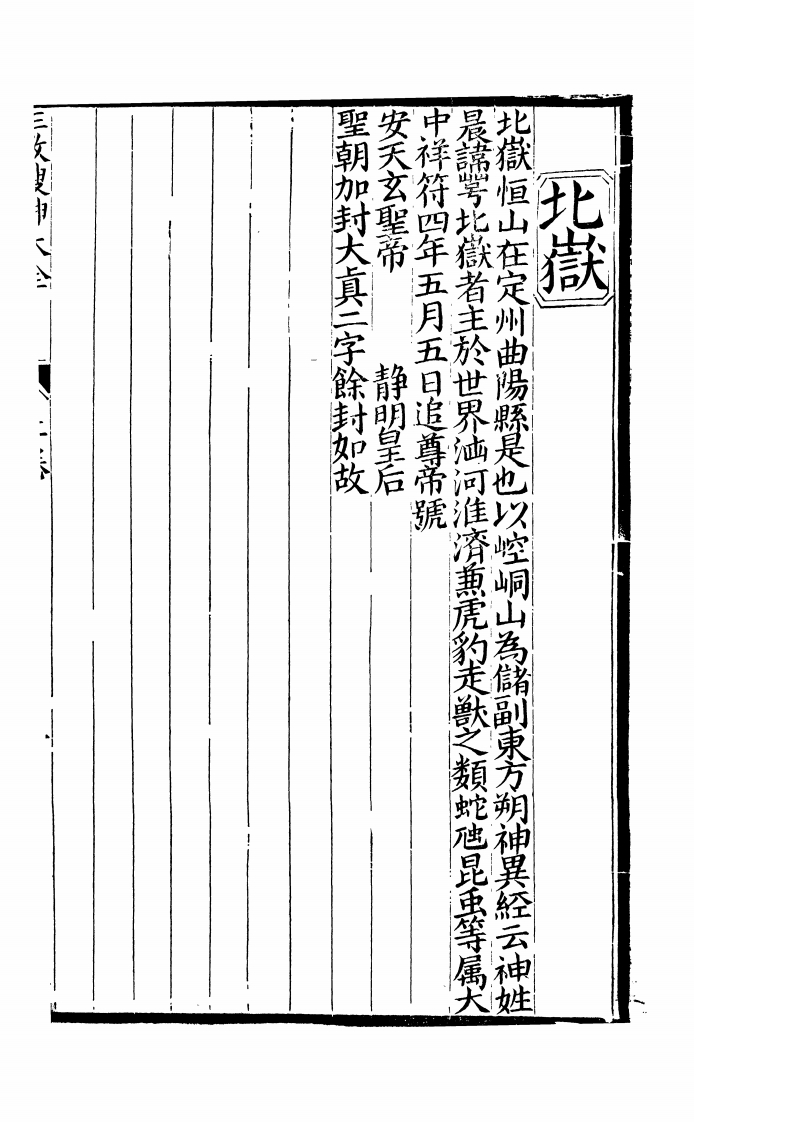 北嶽
北嶽恒山在定州曲陽縣是也以崆峒山為儲副東方朔神異經云神姓
晨諱崿北嶽者主於世界江河淮濟兼虎豹走獸之類蛇虺昆虫等属大
中祥符四年五月五日追尊帝號
安天玄聖帝 静明皇后
聖朝加封大貞二字餘封如故
三教搜神大全 二卷